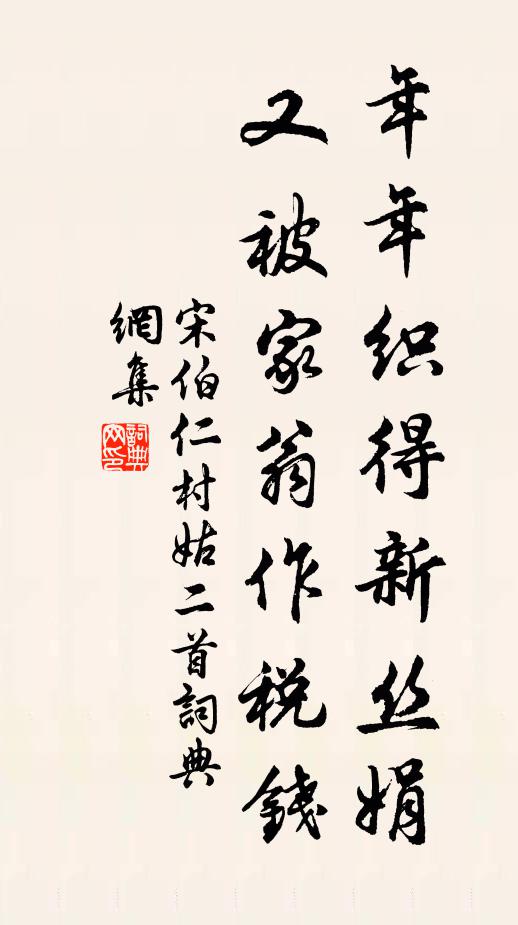 年年织得新丝娟
又被家翁作税錢
宋伯仁村姑二首詞典
網集
詞典
网印